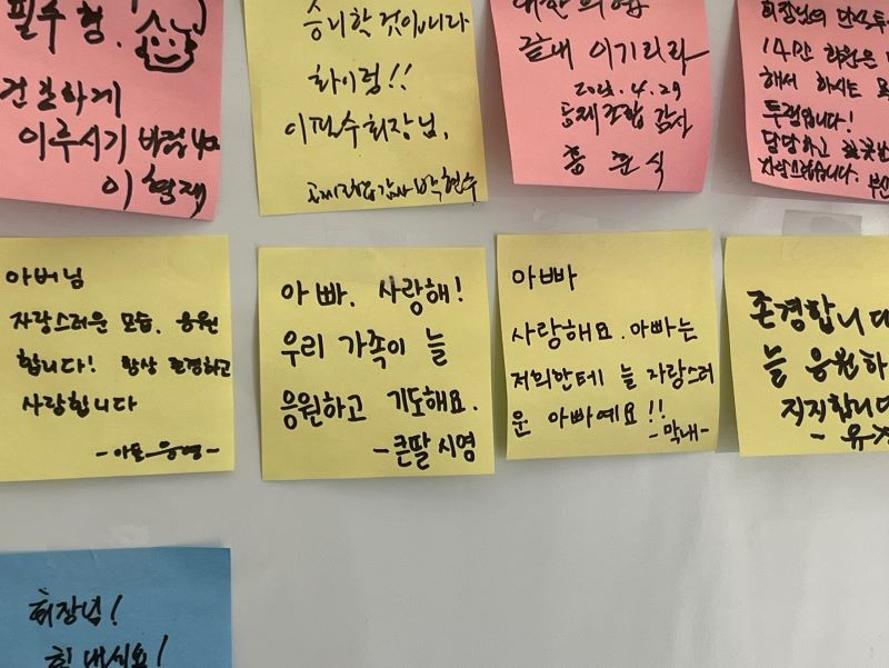 필수형.
건강하게
이루시기 바랍니다
이 형재
승리할 것입니다
화이링!!
이필수 회장님.
공제조합 감사 박현수
끝내 이기리라
2023. 4. 29
공제조합 감사
홍 준 식
회장님의 단식투
14만 회원은
해서 하시는
투쟁입니다!
당당하고
자랑스럽습니다.
아버님
자랑스러운 모습. 응원
합니다! 항상 존경하고
사랑합니다
아빠. 사랑해!
우리 가족이 늘
응원하고 기도해요.
-큰딸 시영
아빠
사랑해요. 아빠는
저희한테 늘 자랑스러
운 아빠예요!!
-막내-
존경합니다
늘 응원하
지지합니다
회장님!
힘 내세요!